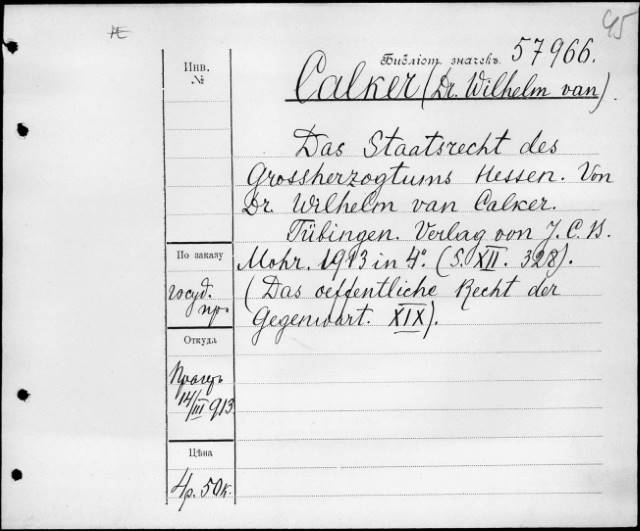 45
Æ
Инв.
№
Библіот. значекъ. 57966.
Calker (Dr. Wilhelm van).
Das Staatsrecht des
Grossherzogtums Hessen. Von
Dr. Wilhelm van Calker.
Tübingen. Verlag von J. C. B.
Mohr. 1913 in 4°. (S. XII. 328).
(Das oeffentliche Recht der
Gegenwart. XIX).
По заказу
госуд.
пр.
Откуда
14/III 913
Цѣна
4р. 50к.